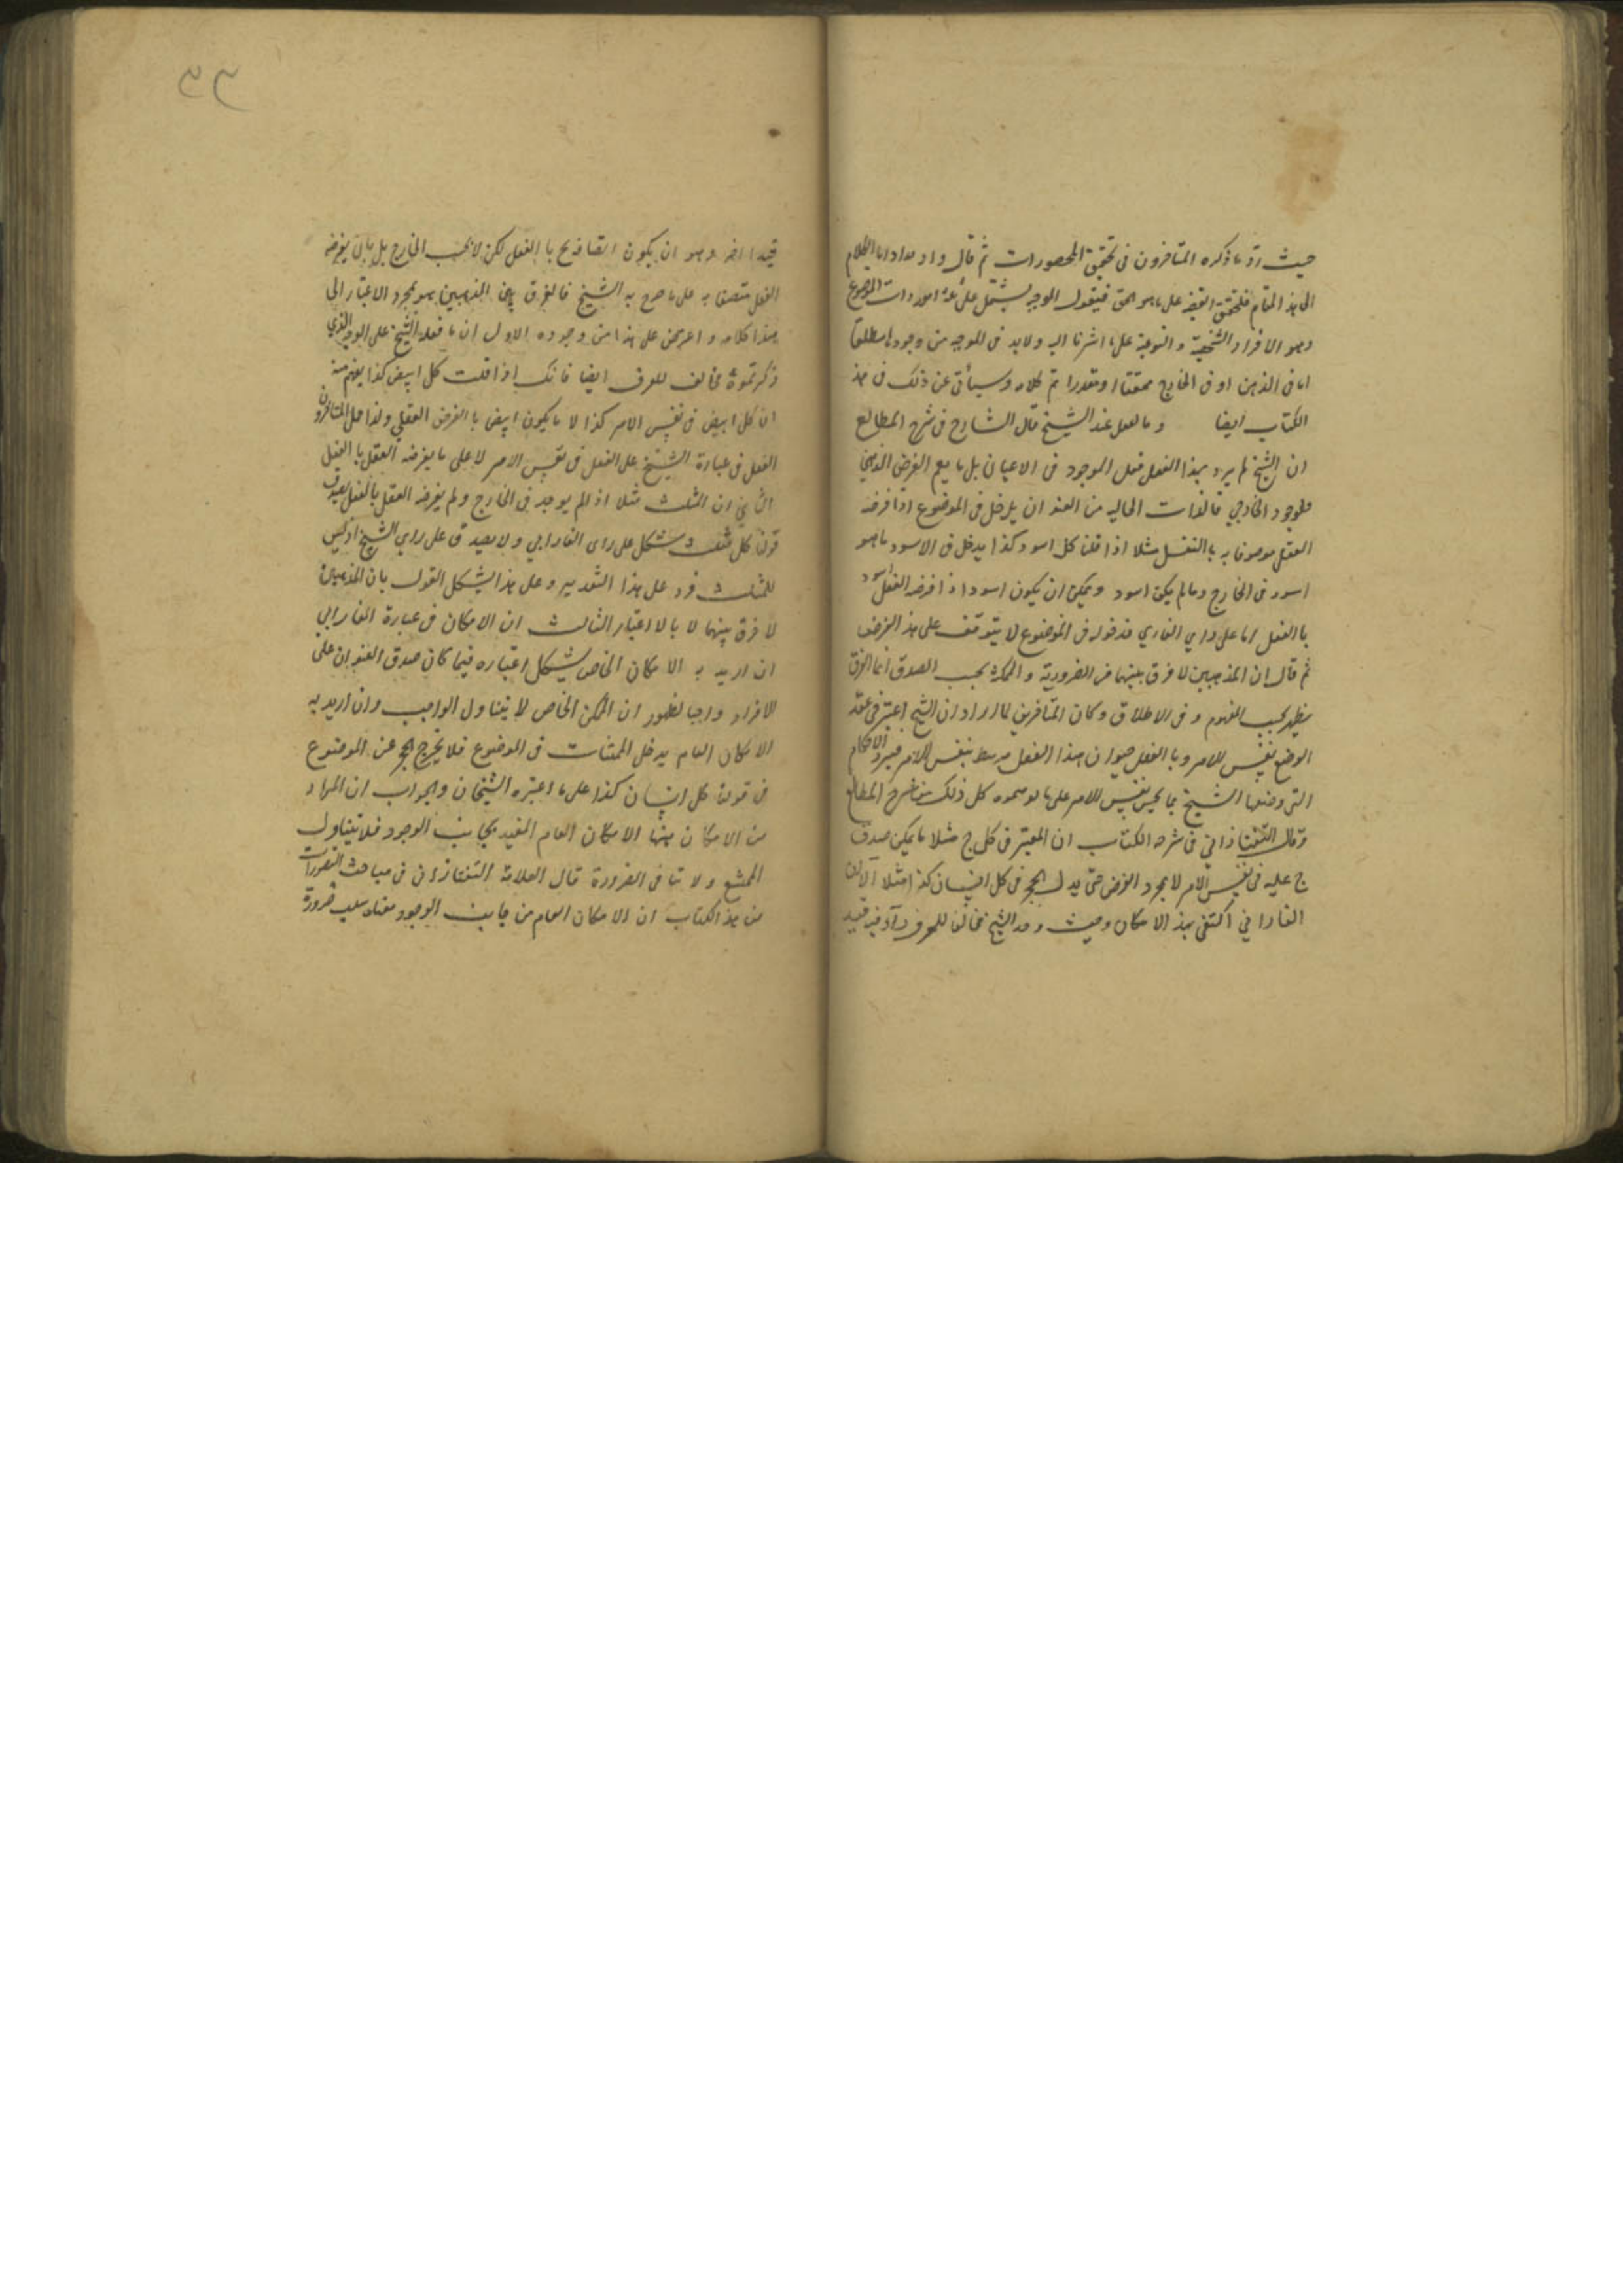 حيث رد ما ذكره المتأخرون في تحقيق المحصورات ثم قال واذ
الى هذا المقام فلنحقق القضية على ما هو الحق فنقول الموجبة يشتمل على عدة امور ذات الموضوع
وهو الافراد الشخصية والنوعية على ما اشرنا اليه ولا بد في الموجبة من وجودها مطلقا
اما في الذهن او في الخارج محققا او مقدرا تم كلامه وسيأتي عن ذلك في هذ
الكتاب ايضا وبالفعل عند الشيخ قال الشارح في شرح المطالع
ان الشيخ لم يرد بهذا الفعل فعل الموجود في الاعيان بل ما يعم الفرض الذهني
والوجود الخارجي فالذات الخالية من العنوان يدخل في الموضوع اذا فرضه
العقل موصوفا به باالفعل مثلا اذا قلنا كل اسود كذا يدخل في الاسود ما هو
اسود في الخارج وما لم يكن اسود ويمكن ان يكون اسود اذا فرضه العقل اسود
باالفعل اما على راي الفارابي فدخوله في الموضوع لا يتوقف على هذ الفرض
ثم قال ان المذهبين لا فرق بينهما في الضرورية و بحسب الصدق انما الفرق
يظهر بحسب المفهوم وفي الاطلاق وكان المتأخرين لما ان الشيخ اعتبر في عقد
الوضع نفس الامر وبا الفعل ان هذا الفعل بنفس الامر الاحكام
التي وضعها الشيخ بما بحسب نفس الامر على ما كل ذلك من شرح المطالع
وقال التفتازاني في شرحه الكتاب ان المعتبر في كل ج مثلا ما يمكن صدق
ج عليه في نفس الامر لا بمجرد الفرض حتى يدخل الحجر في كل انسان كذا مثلا الا ان
الفارابي اكتفى بهذ الامكان وحيث وجد الشيخ مخالفا للعرف زاد فيه قيد
قيدا اخر وهو ان يكون اتصاف ج باالفعل لكن لا بحسب الخارج بل بان يفرضه
العقل متصفا به على ما صرح به الشيخ فالفرق بين المذهبين هو بمجرد الاعتبار الى
هذا كلامه واعترض على هذا من وجوه الاول ان ما فعله الشيخ على الوجه الذي
ذكرتموه مخالف للعرف ايضا فانك اذا قلت كل ابيض كذا يفهم منه
ان كل ابيض في نفس الامر كذا لا ما يكون ابيض باالفرض العقلي ولذا حمل المتأخرون
الفعل في عبارة الشيخ على الفعل في نفس الامر لا على ما يفرضه العقل باالفعل
الثاني ان المثلث مثلا اذ الم يوجد في الخارج ولم يفرضه العقل بالفعل يصدق
قولنا كل مثلث شكل على راى الفارابي ولا يصدق على راي الشيخ اذ ليس
للمثلث فرد على هذا التقدير وعلى هذا يشكل القول بان المذهبين
لا فرق بينهما لا بالاعتبار الثالث ان الامكان في عبارة الفارابي
ان اريد به الامكان الخاص يشكل اعتباره فيما كان صدق العنوان على
الافراد واجبا لظهور ان الممكن الخاص لا يتناول الواجب وان اريد به
الامكان العام يدخل الممتنعات في الموضوع فلا يخرج الحجر عن الموضوع
في قولنا كل انسان كذا على ما اعتبره الشيخان والجواب ان المراد
من الامكان هنا الامكان العام المقيد بجانب الوجود فلا يتناول
الممتنع ولا تنافى الضرورة قال العلامة التفتازاني في مباحث التصورات
من هذ الكتاب ان الامكان العام من جانب الوجود معناه سلب ضرورة